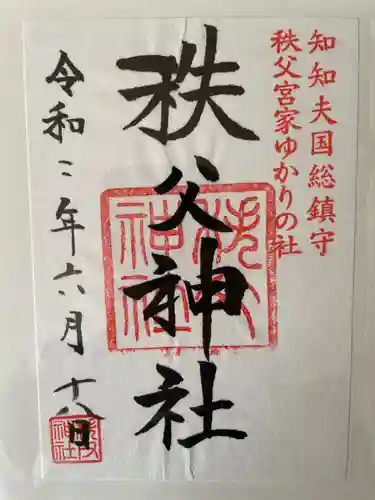 知知夫国総鎮守
秩父宮家ゆかりの社
秩父神社
令和二年六月十八日
秩父神社
秩父神社